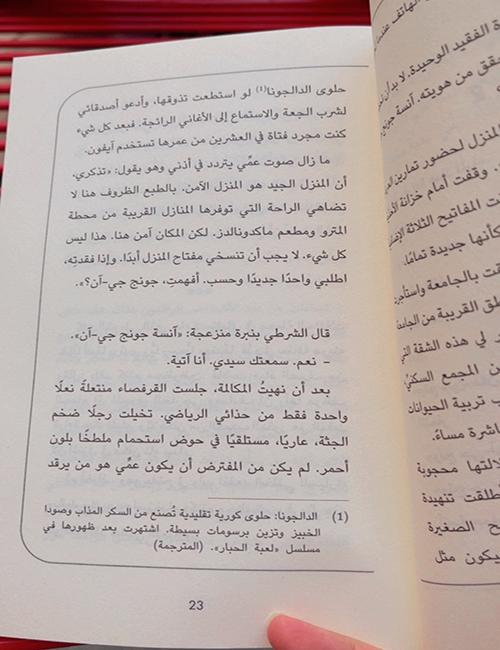 حلوى الدالجونا(1) لو استطعت تذوقها، وأدعو أصدقائي
لشرب الجعة والاستماع إلى الأغاني الرائجة. فبعد كل شيء
كنت مجرد فتاة في العشرين من عمرها تستخدم آيفون.
ما زال صوت عمِّي يتردد في أذني وهو يقول: «تذكري.
أن المنزل الجيد هو المنزل الآمن. بالطبع الظروف هنا لا
تضاهي الراحة التي توفرها المنازل القريبة من محطة
المترو ومطعم ماكدونالدز. لكن المكان آمن هنا. هذا ليس
كل شيء. لا يجب أن تنسخي مفتاح المنزل أبدًا. وإذا فقدتِه،
اطلبي واحدًا جديدًا وحسب. أفهمتِ، جونج جي-آن؟».
قال الشرطي بنبرة منزعجة: «آنسة جونج جي-آن».
- نعم. سمعتك سيدي. أنا آتية.
بعد أن نهيتُ المكالمة، جلست القرفصاء منتعلةً نعلًا
واحدة فقط من حذائي الرياضي. تخيلت رجلًا ضخم
الجثة، عاريًا، مستلقيًا في حوض استحمام ملطخًا بلون
أحمر. لم يكن من المفترض أن يكون عمِّي هو من يرقد
(1) الدالجونا: حلوى كورية تقليدية تُصنع من السكر المذاب وصودا
الخبيز وتزين برسومات بسيطة. اشتهرت بعد ظهورها في
مسلسل «لعبة الحبار». (المترجمة)
23
الهاتف
ة الفقيد الوحيدة. لا بد أن
حقق من هويته. آنسة جونج
المنزل لحضور تمارين
. وقفت أمام خزانة
ت المفاتيح الثلاثة
كأنها جديدة تمامًا.
قت بالجامعة واستأجر
طق القريبة من الجامعة
ر لي هذه الشقة التي
ن المجمع السكني
ب تربية الحيوانات
اشرة مساءً.
لالتها محجوبة
أطلقت تنهيدة
ح الصغيرة
يكون مثل